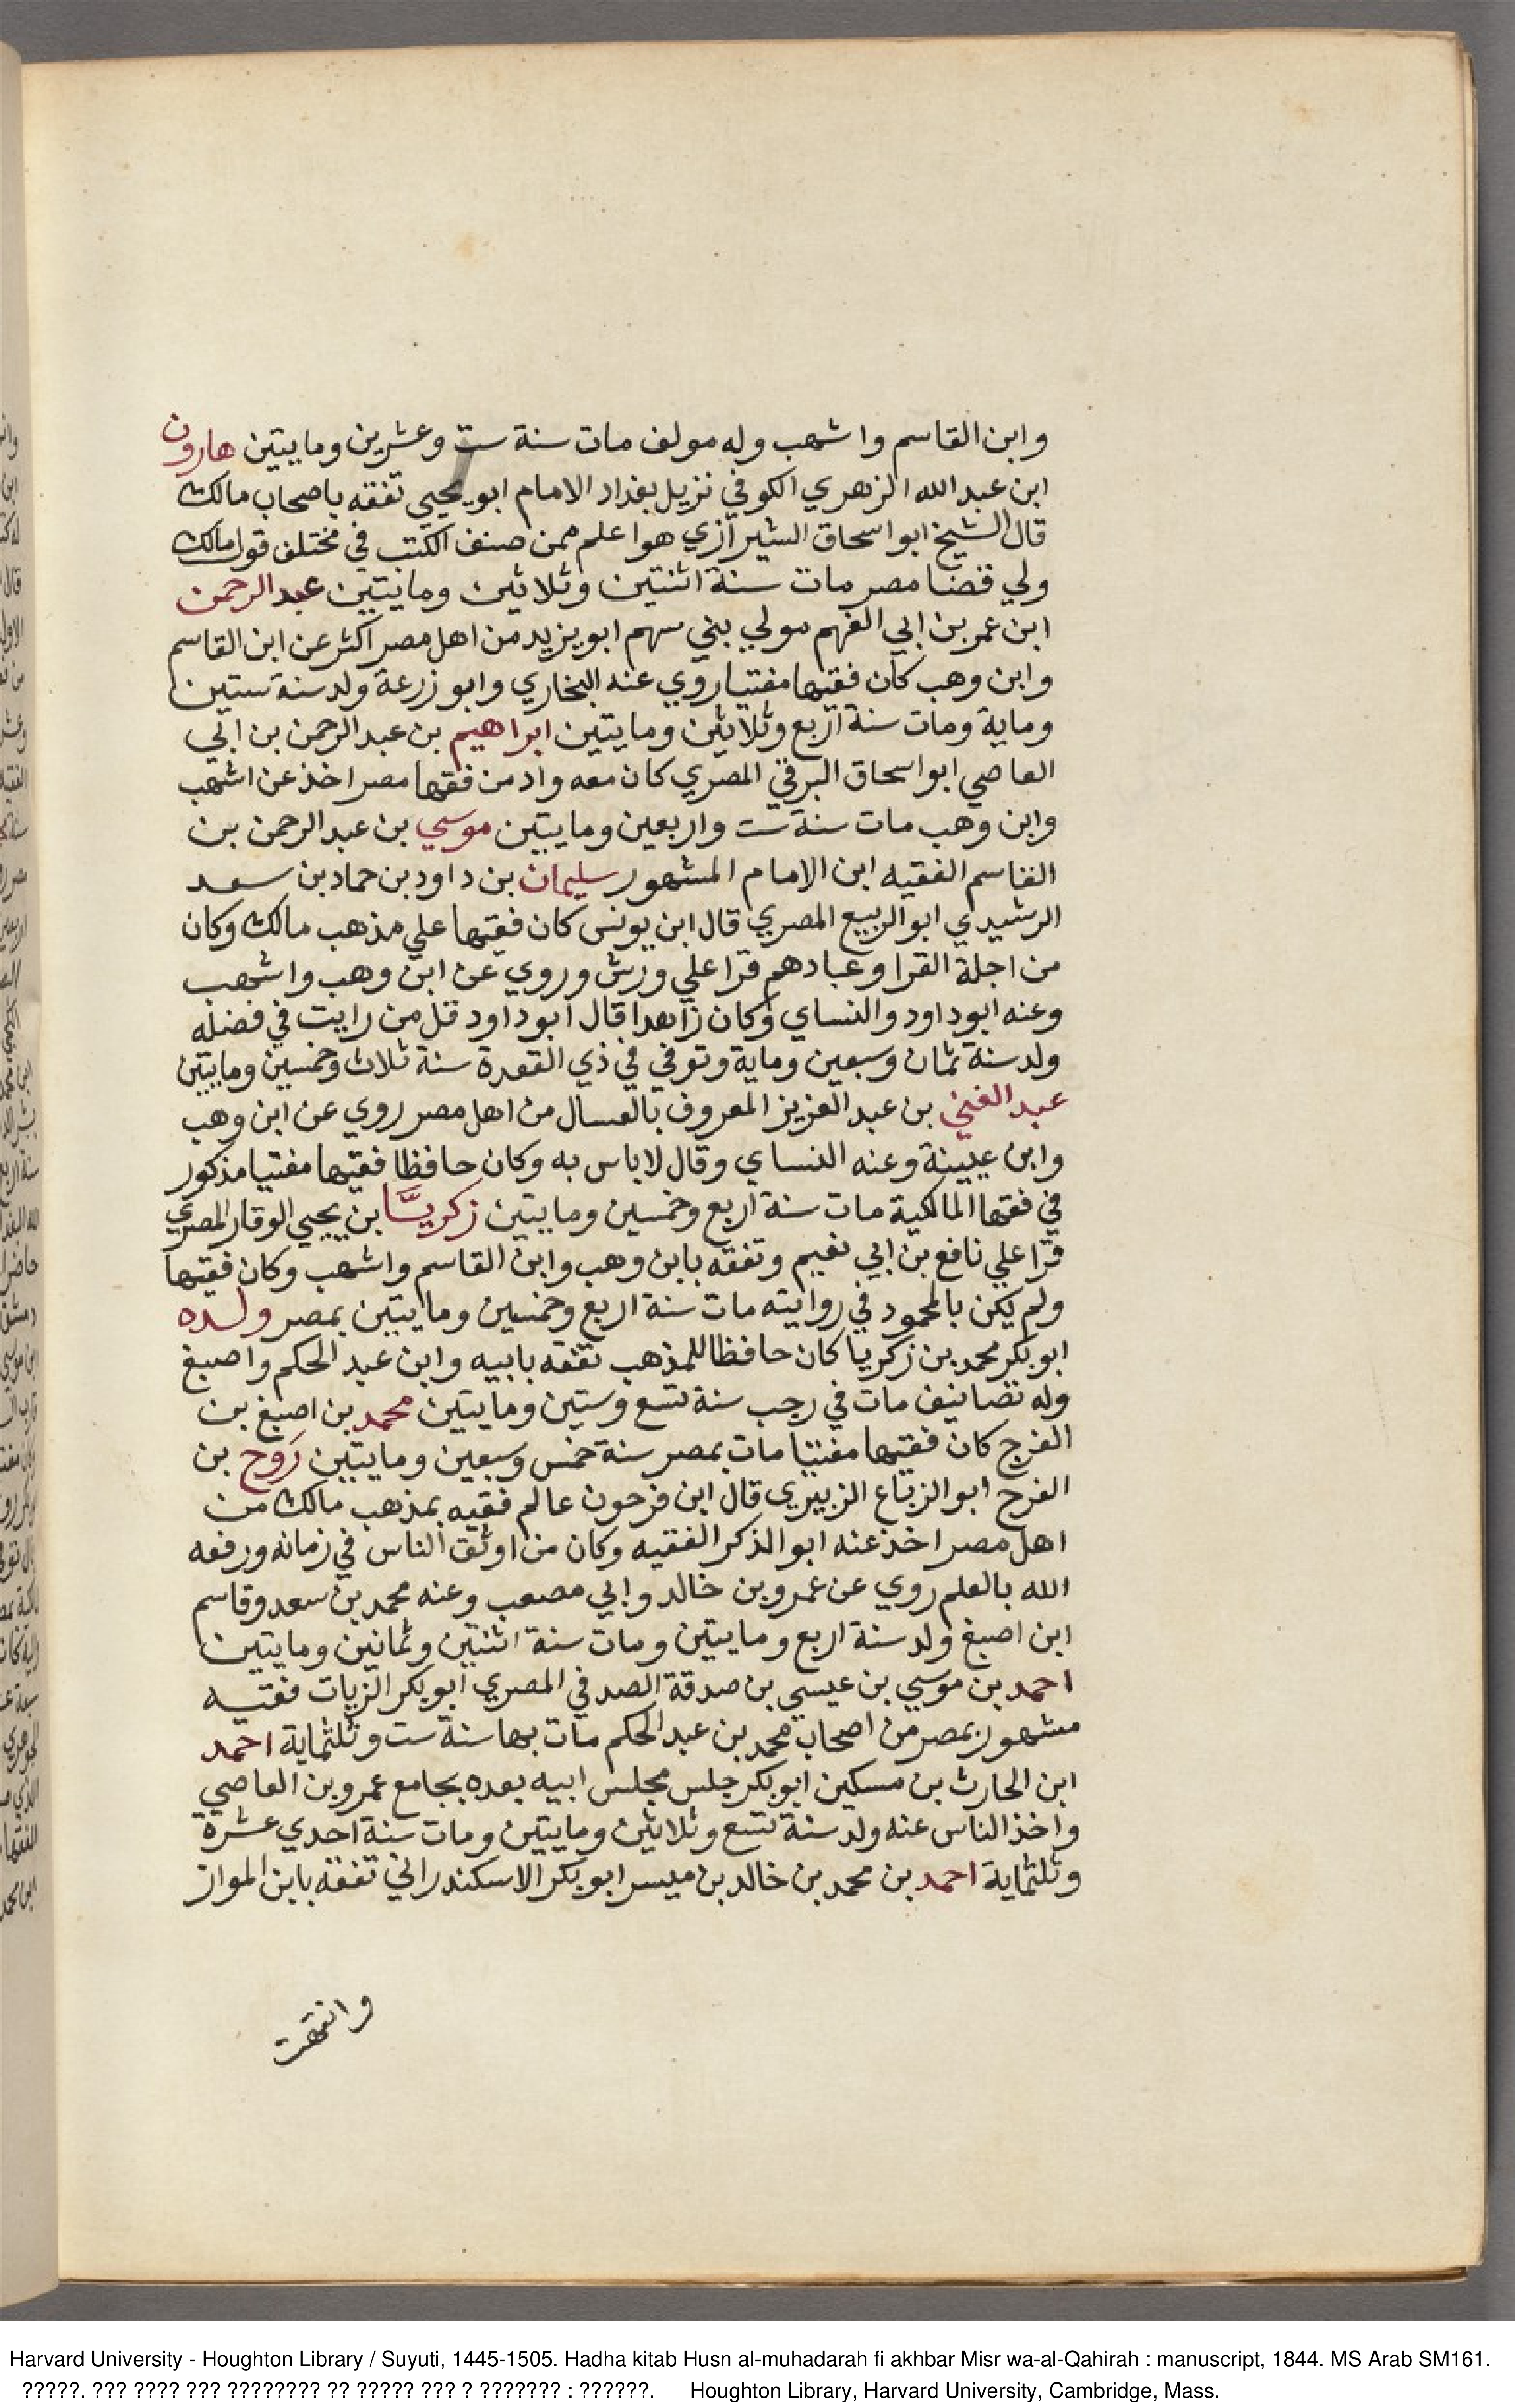 وابن القاسم واشهب وله مولف مات سنة ست وعشرين ومايتين هارون
ابن عبد الله الزهري الكوفي نزيل بغداد الامام ابو يحيي تفقه باصحاب مالك
قال الشيخ ابو اسحاق الشيرازي هو اعلم ممن صنف الكتب في مختلف قول مالك
ولي قضا مصر مات سنة اثنتين وثلاثين ومايتين عبد الرحمن
ابن عمر بن ابي الفهم مولي بني سهم ابو يزيد من اهل مصر اكثر عن ابن القاسم
وابن وهب كان فقيها مفتيا روي عنه البخاري وابو زرعة ولد سنة ستين
وماية ومات سنة اربع وثلاثين ومايتين ابراهيم بن عبد الرحمن بن ابي
العاصي ابو اسحاق البرقي المصري كان معدوادمن فقها مصر اخذ عن اشهب
وابن وهب مات سنة ست واربعين ومايتين موسي بن عبد الرحمن بن
القاسم الفقيه ابن الامام المشهور سليمان بن داود بن حماد بن سعد
الرشيدي ابو الربيع المصري قال ابن يونس كان فقيها علي مذهب مالك وكان
من اجلة القرا وعبادهم قرا علي ورش وروي عن ابن وهب واشهب
وعنه ابو داود والنساي وكان زاهدا قال ابو داود قل من رايت في فضله
ولد سنة ثمان وسبعين وماية وتوفي في ذي القعدة سنة ثلاث وخمسين ومايتين
عبد الغني بن عبد العزيز المعروف بالعسال من اهل مصر روي عن ابن وهب
وابن عيينة وعنه النساي وقال لا باس به وكان حافظا فقيها مفتيا مذكور
في فقها المالكية مات سنة اربع وخمسين ومايتين زكريا بن يحيي الوقار المصري
قرا علي نافع بن ابي نعيم وتفقه بابن وهب وابن القاسم واشهب وكان فقيها
ولم يكن بالمحمود في روايته مات سنة اربع وخمسين ومايتين بمصر ولده
ابو بكر محمد بن زكريا كان حافظا للمذهب تفقه بابيه وابن عبد الحكم واصبغ
وله تصانيف مات في رجب سنة تسع وستين ومايتين محمد بن اصبغ بن
الفرج كان فقيها مفتيا مات بمصر سنة خمس وسبعين ومايتين رَوح بن
الفرج ابو الزنباع الزبيري قال ابن فرحون عالم فقيه بمذهب مالك من
اهل مصر اخذ عنه ابو الذكر الفقيه وكان من اوثق الناس في زمانه ورفعه
الله بالعلم روي عن عمرو بن خالد وابي مصعب وعنه محمد بن سعد وقاسم
ابن اصبغ ولد سنة اربع ومايتين ومات سنة اثنتين وثمانين ومايتين
احمد بن موسي بن عيسي بن صدقة الصدفي المصري ابو بكر الزيات فقيه
مشهور بمصر من اصحاب محمد بن عبد الحكم مات بها سنة ست وثلثماية احمد
ابن الحارث بن مسكين ابو بكر جلس مجلس ابيه بعده بجامع عمرو بن العاصي
واخذ الناس عنه ولد سنة تسع وثلاثين ومايتين ومات سنة احدي عشرة
وثلثماية احمد بن محمد بن خالد بن ميسر ابو بكر الاسكندراني تفقه بابن المواز
وانتهت
Harvard University - Houghton Library / Suyuti, 1445-1505. Hadha kitab Husn al-muhadarah fi akhbar Misr wa-al-Qahirah : manuscript, 1844. MS Arab SM161.
?????. ??? ???? ??? ???????? ?? ????? ??? ? ??????? : ??????. Houghton Library, Harvard University, Cambridge, Mass.